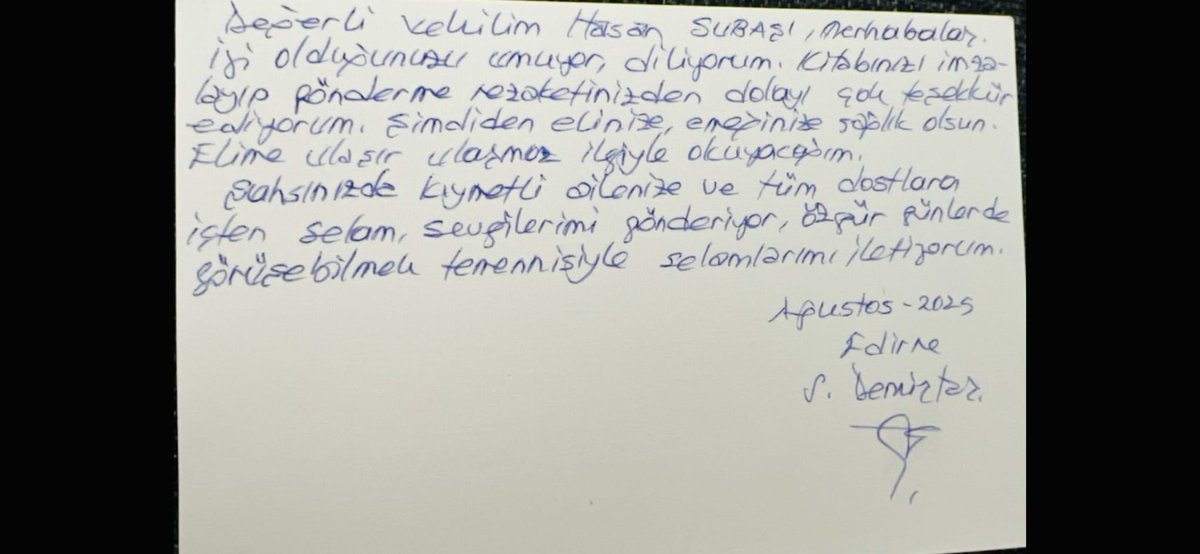 Değerli vekilim Hasan SUBAŞI, merhabalar.
İyi olduğunuzu umuyor, diliyorum. Kitabınızı imza-
layıp gönderme nezaketinizden dolayı çok teşekkür
ediyorum. Şimdiden elinize, emeğinize sağlık olsun.
Elime ulaşır ulaşmaz ilgiyle okuyacağım.
Şahsınızda kıymetli ailenize ve tüm dostlara
içten selam, sevgilerimi gönderiyor, özgür günlerde
görüşebilmek temennisiyle selamlarımı iletiyorum.
Ağustos-2025
Edirne
S. Demirtaş.